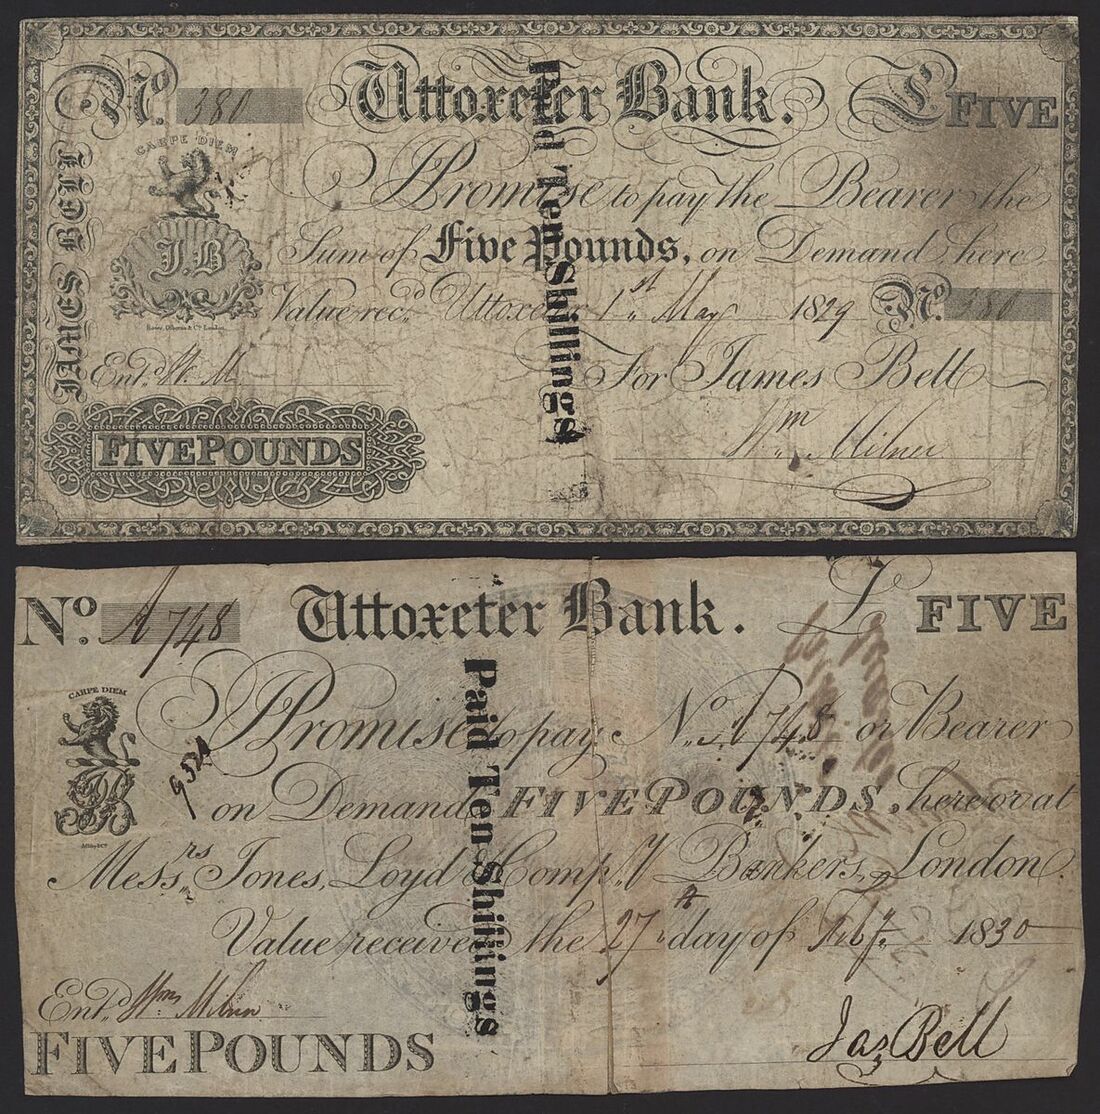 No. 380 Uttoxeter Bank. £ FIVE
CARPE DIEM
JAMES BELL
J.B
I Promise to pay the Bearer the
Sum of Five Pounds, on Demand, here
Value recd. Uttoxeter 1st May 1829 No. 380
Entd. W. M.
For James Bell
Wm. Milner
FIVE POUNDS
Paid Ten Shillings
No. A 748 Uttoxeter Bank. £ FIVE
CARPE DIEM
I Promise to pay No. A 748 or Bearer
on Demand FIVE POUNDS, here or at
Messrs. Jones, Loyd & Compy. Bankers, London.
Value received the 27th day of Feby. 1830
Entd. Wm. Milner
FIVE POUNDS
Jas Bell
Paid Ten Shillings